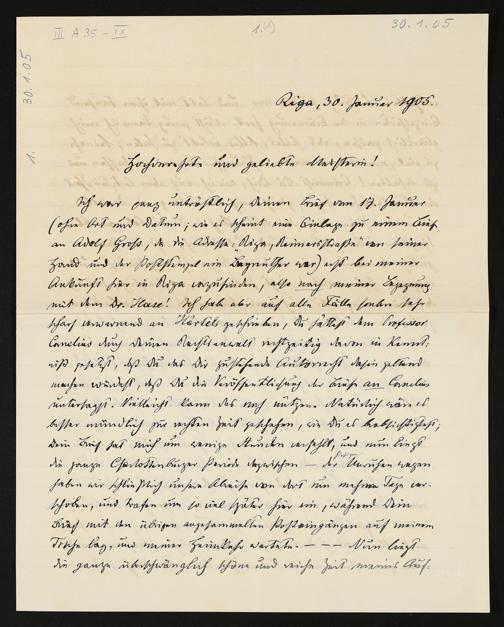 III A 35 - IX
1.(1)
30.1.05
30.1.05
1.
Riga, 30. Januar 1905.
Hochverehrte und geliebte Meisterin!
Ich war ganz untröstlich, Deinen Brief vom 17. Januar
(ohne Ort und Datum; wie es scheint eine Einlage zu einem Brief
an Adolf Groß, da die Adresse „Riga, Reimersstraße“ von seiner
Hand und der Poststempel ein Bayreuther war) erst bei meiner
Ankunft hier in Riga vorzufinden, also nach meiner Begegnung
mit dem Dr. Hase! Ich habe aber auf alle Fälle soeben sehr
scharf verwarnend an Härtels geschrieben, Du hättest dem Professor
Cornelius durch Deinen Rechtsanwalt rechtzeitig davon in Kennt-
niß gesetzt, daß Du das Dir zustehende Autorrecht dahin geltend
machen würdest, daß Du die Veröffentlichung der Briefe an Cornelius
untersagst. Vielleicht kann das noch nützen. Natürlich wäre es
besser mündlich zur rechten Zeit geschehen, wie Du es beabsichtigtest;
Dein Brief hat mich um wenige Stunden verfehlt, und nun liegt
die ganze Charlottenburger Periode dazwischen — der Unruhen wegen
haben wir schließlich unsere Abreise von dort um mehrere Tage ver-
schoben, und trafen um so viel später hier ein, während Dein
Brief mit den übrigen angesammelten Posteingängen auf meinem
Tische lag, und meiner Heimkehr wartete. — — — Nun liegt
die ganze überschwänglich schöne und reiche Zeit meines Auf-